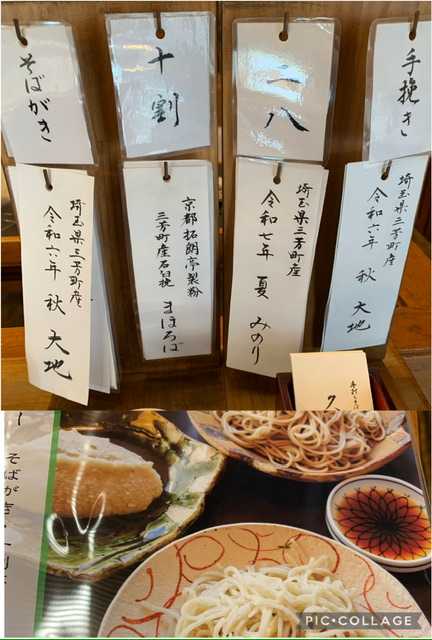 そばがき
十割
二八
手挽き
埼玉県三芳町産
令和六年 秋 大地
京都拓朗亭製粉
三芳町産石臼挽
まほろば
埼玉県三芳町産
令和七年 夏 みのり
埼玉県三芳町産
令和六年 秋 大地
手打そば
そばがき
PIC•COLLAGE